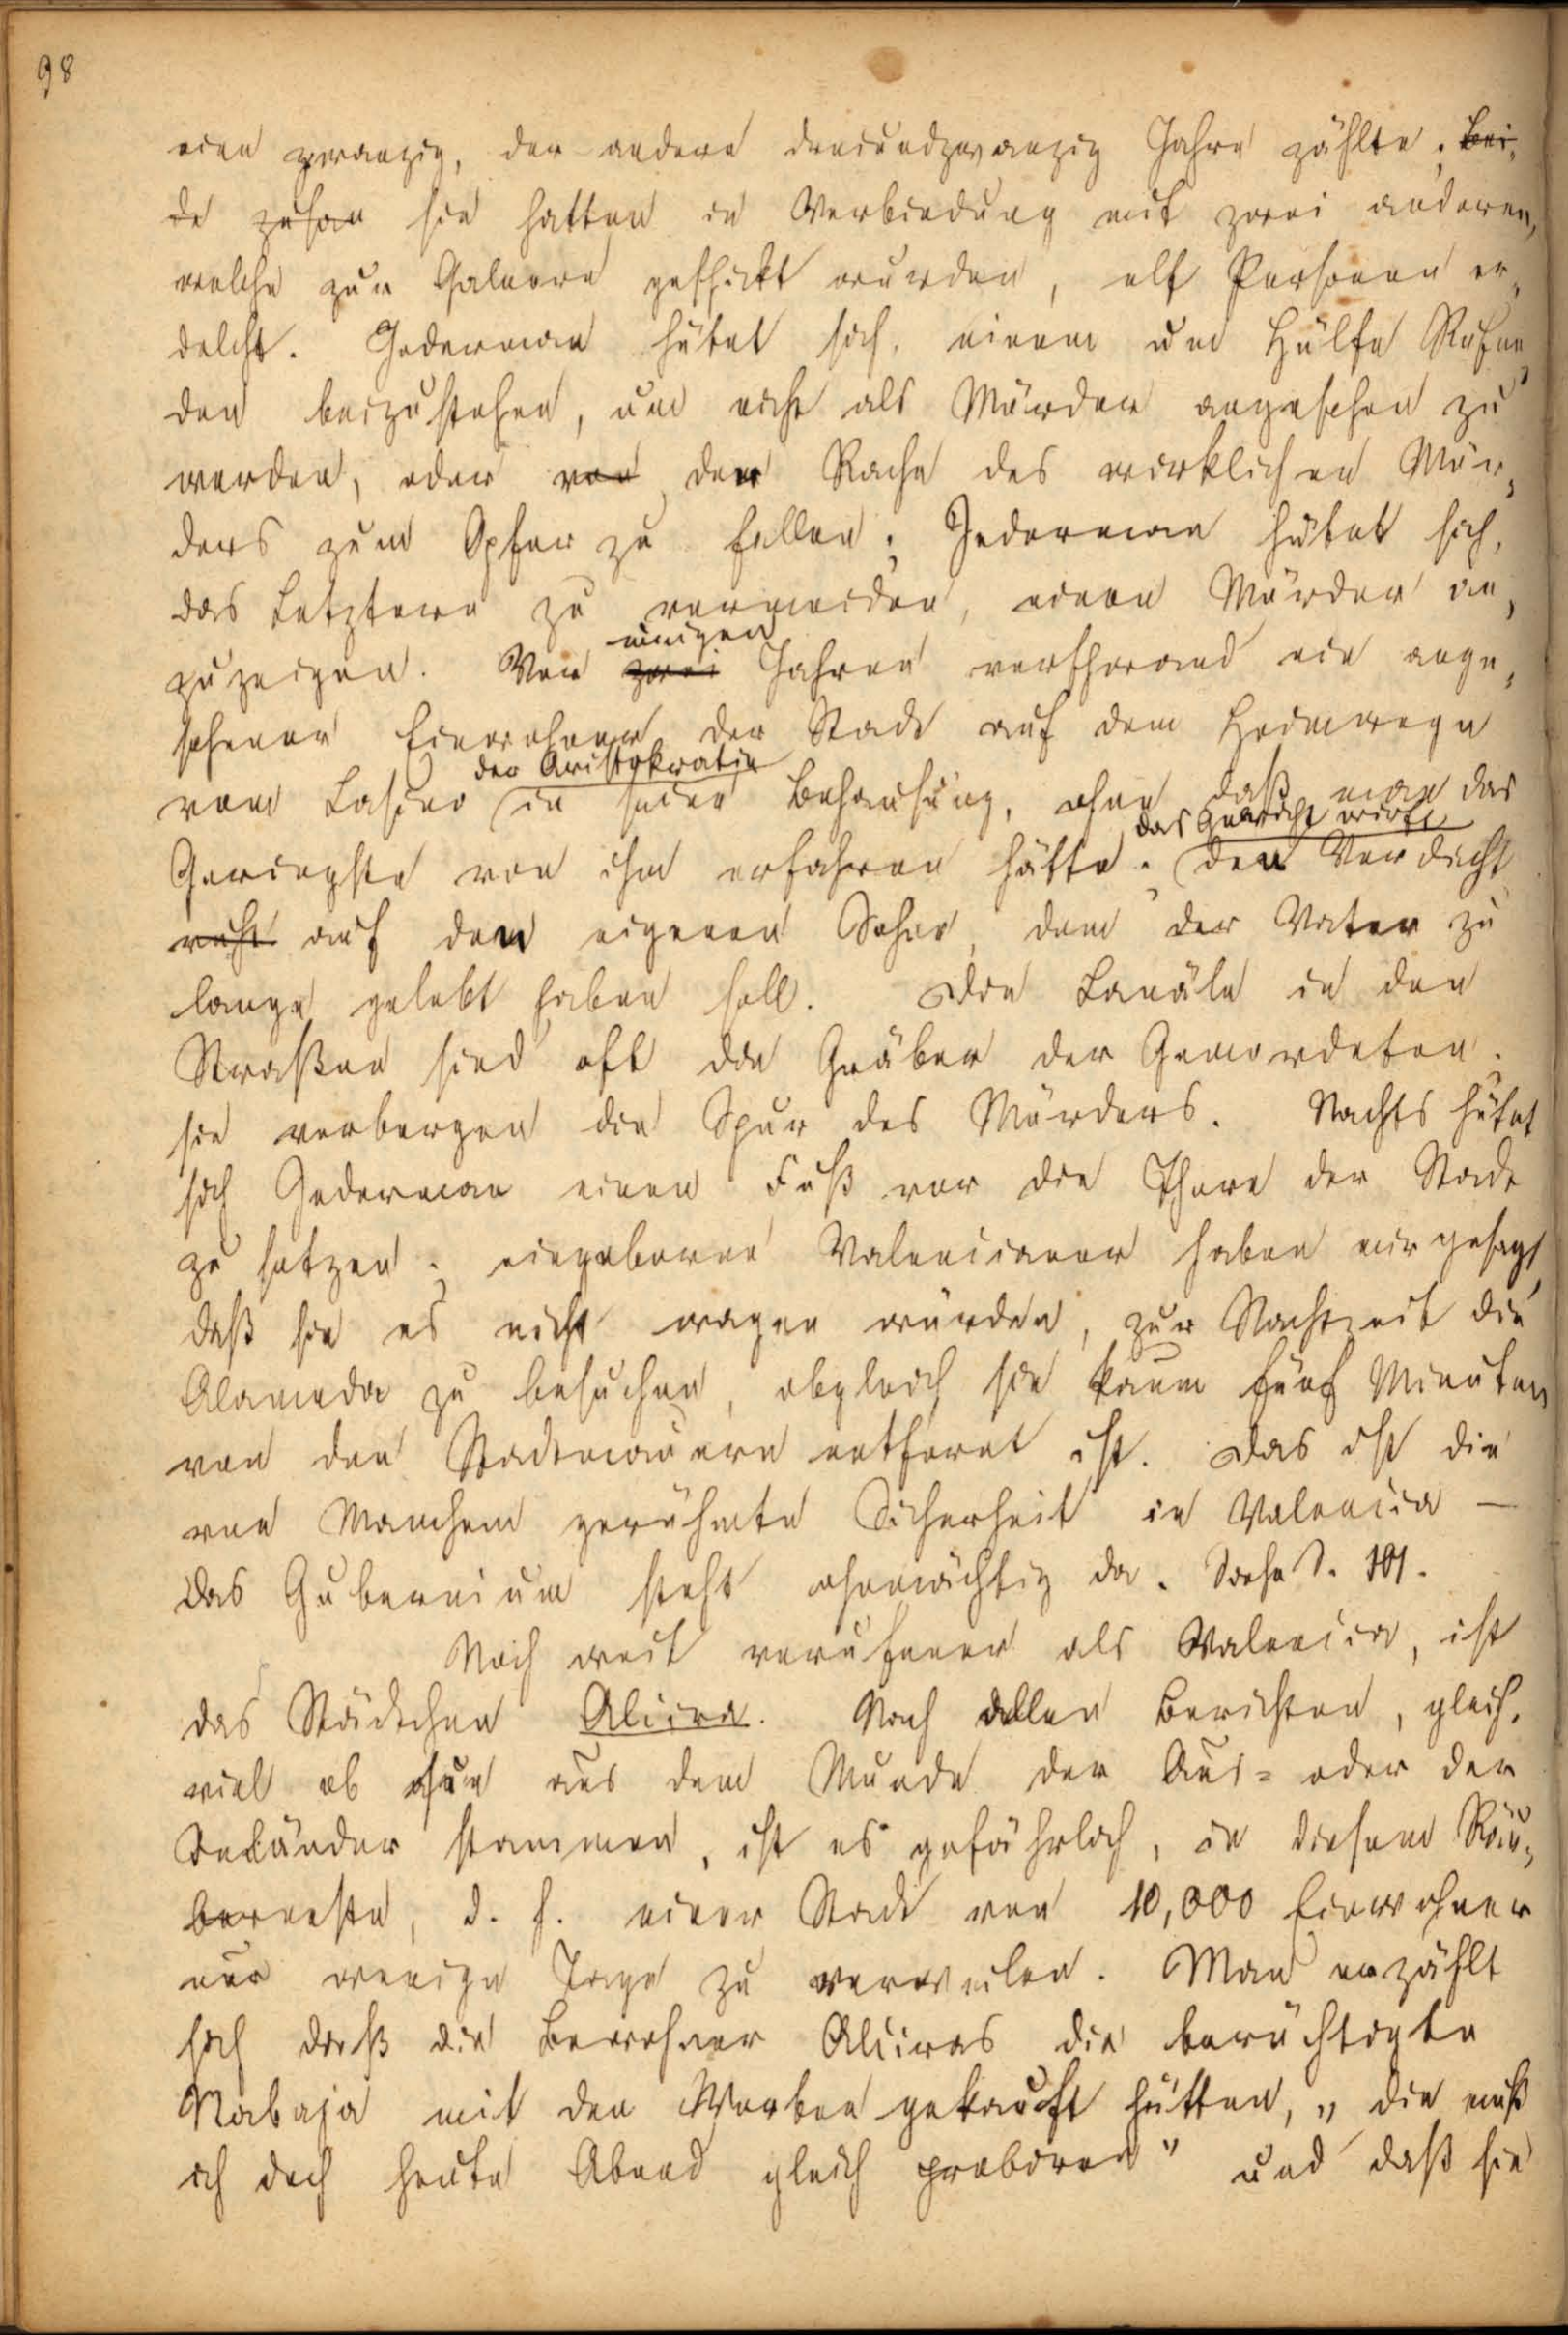 98
eine zwanzig, der andere dreiundzwanzig Jahre zählte; Bei-
de zusan sie hatten in Verbindung mit zwei anderen,
welche zur Galeere geschickt wurden, elf Personen er-
dolcht. Jederman hütet sich, einem um Hülfe Rufen-
den beizustehen, um nicht als Mörder angesehen zu
werden, oder von der Rache des wirklichen Mör-
ders zum Opfer zu fallen; Jederman hütet sich,
das Letztere zu vermeiden, einen Mörder an-
zuzeigen. Vor zwei einigen Jahren verschwand ein ange-
sehener Einwohner der Stadt auf dem Heimwege
vom Casino der Aristokratie in seine Behausung, ohne daß man das
Geringste von ihm erfahren hätte; das Gerücht wirft den Verdacht
ruht auf den eigenen Sohn, dem der Vater zu
lange gelebt haben soll. Die Canäle in den
Straßen sind oft die Gräber der Gemordeten.
sie verbergen die Spur des Mörders. Nachts hütet
sich Jederman einen Fuß vor die Thore der Stadt
zu setzen; eingeborne Valencianer haben mir gesagt,
daß sie es nicht wagen würden, zur Nachtzeit die
Alameda zu besuchen, obgleich sie kaum fünf Minuten
von den Stadtmauern entfernt ist. Das ist die
von Manchem gerühmte Sicherheit in Valencia —
das Gubernium steht ohnmächtig da. Siehe S. 101.
Noch weit verrufener als Valencia, ist
das Städtchen Alcira. Nach allen Berichten, gleich-
viel ob aus dem Munde der Aus- oder der
Inländer stammen, ist es gefährlich, in diesem Räu-
berneste, d. h. einer Stadt von 10,000 Einwohner
nur wenige Tage zu verweilen. Man erzählt
sich daß die Bewohner Alciras die berüchtigte
Nabaja mit den Worten gekauft hätten, „die muß
ich doch heute Abend gleich probiren" und daß sie